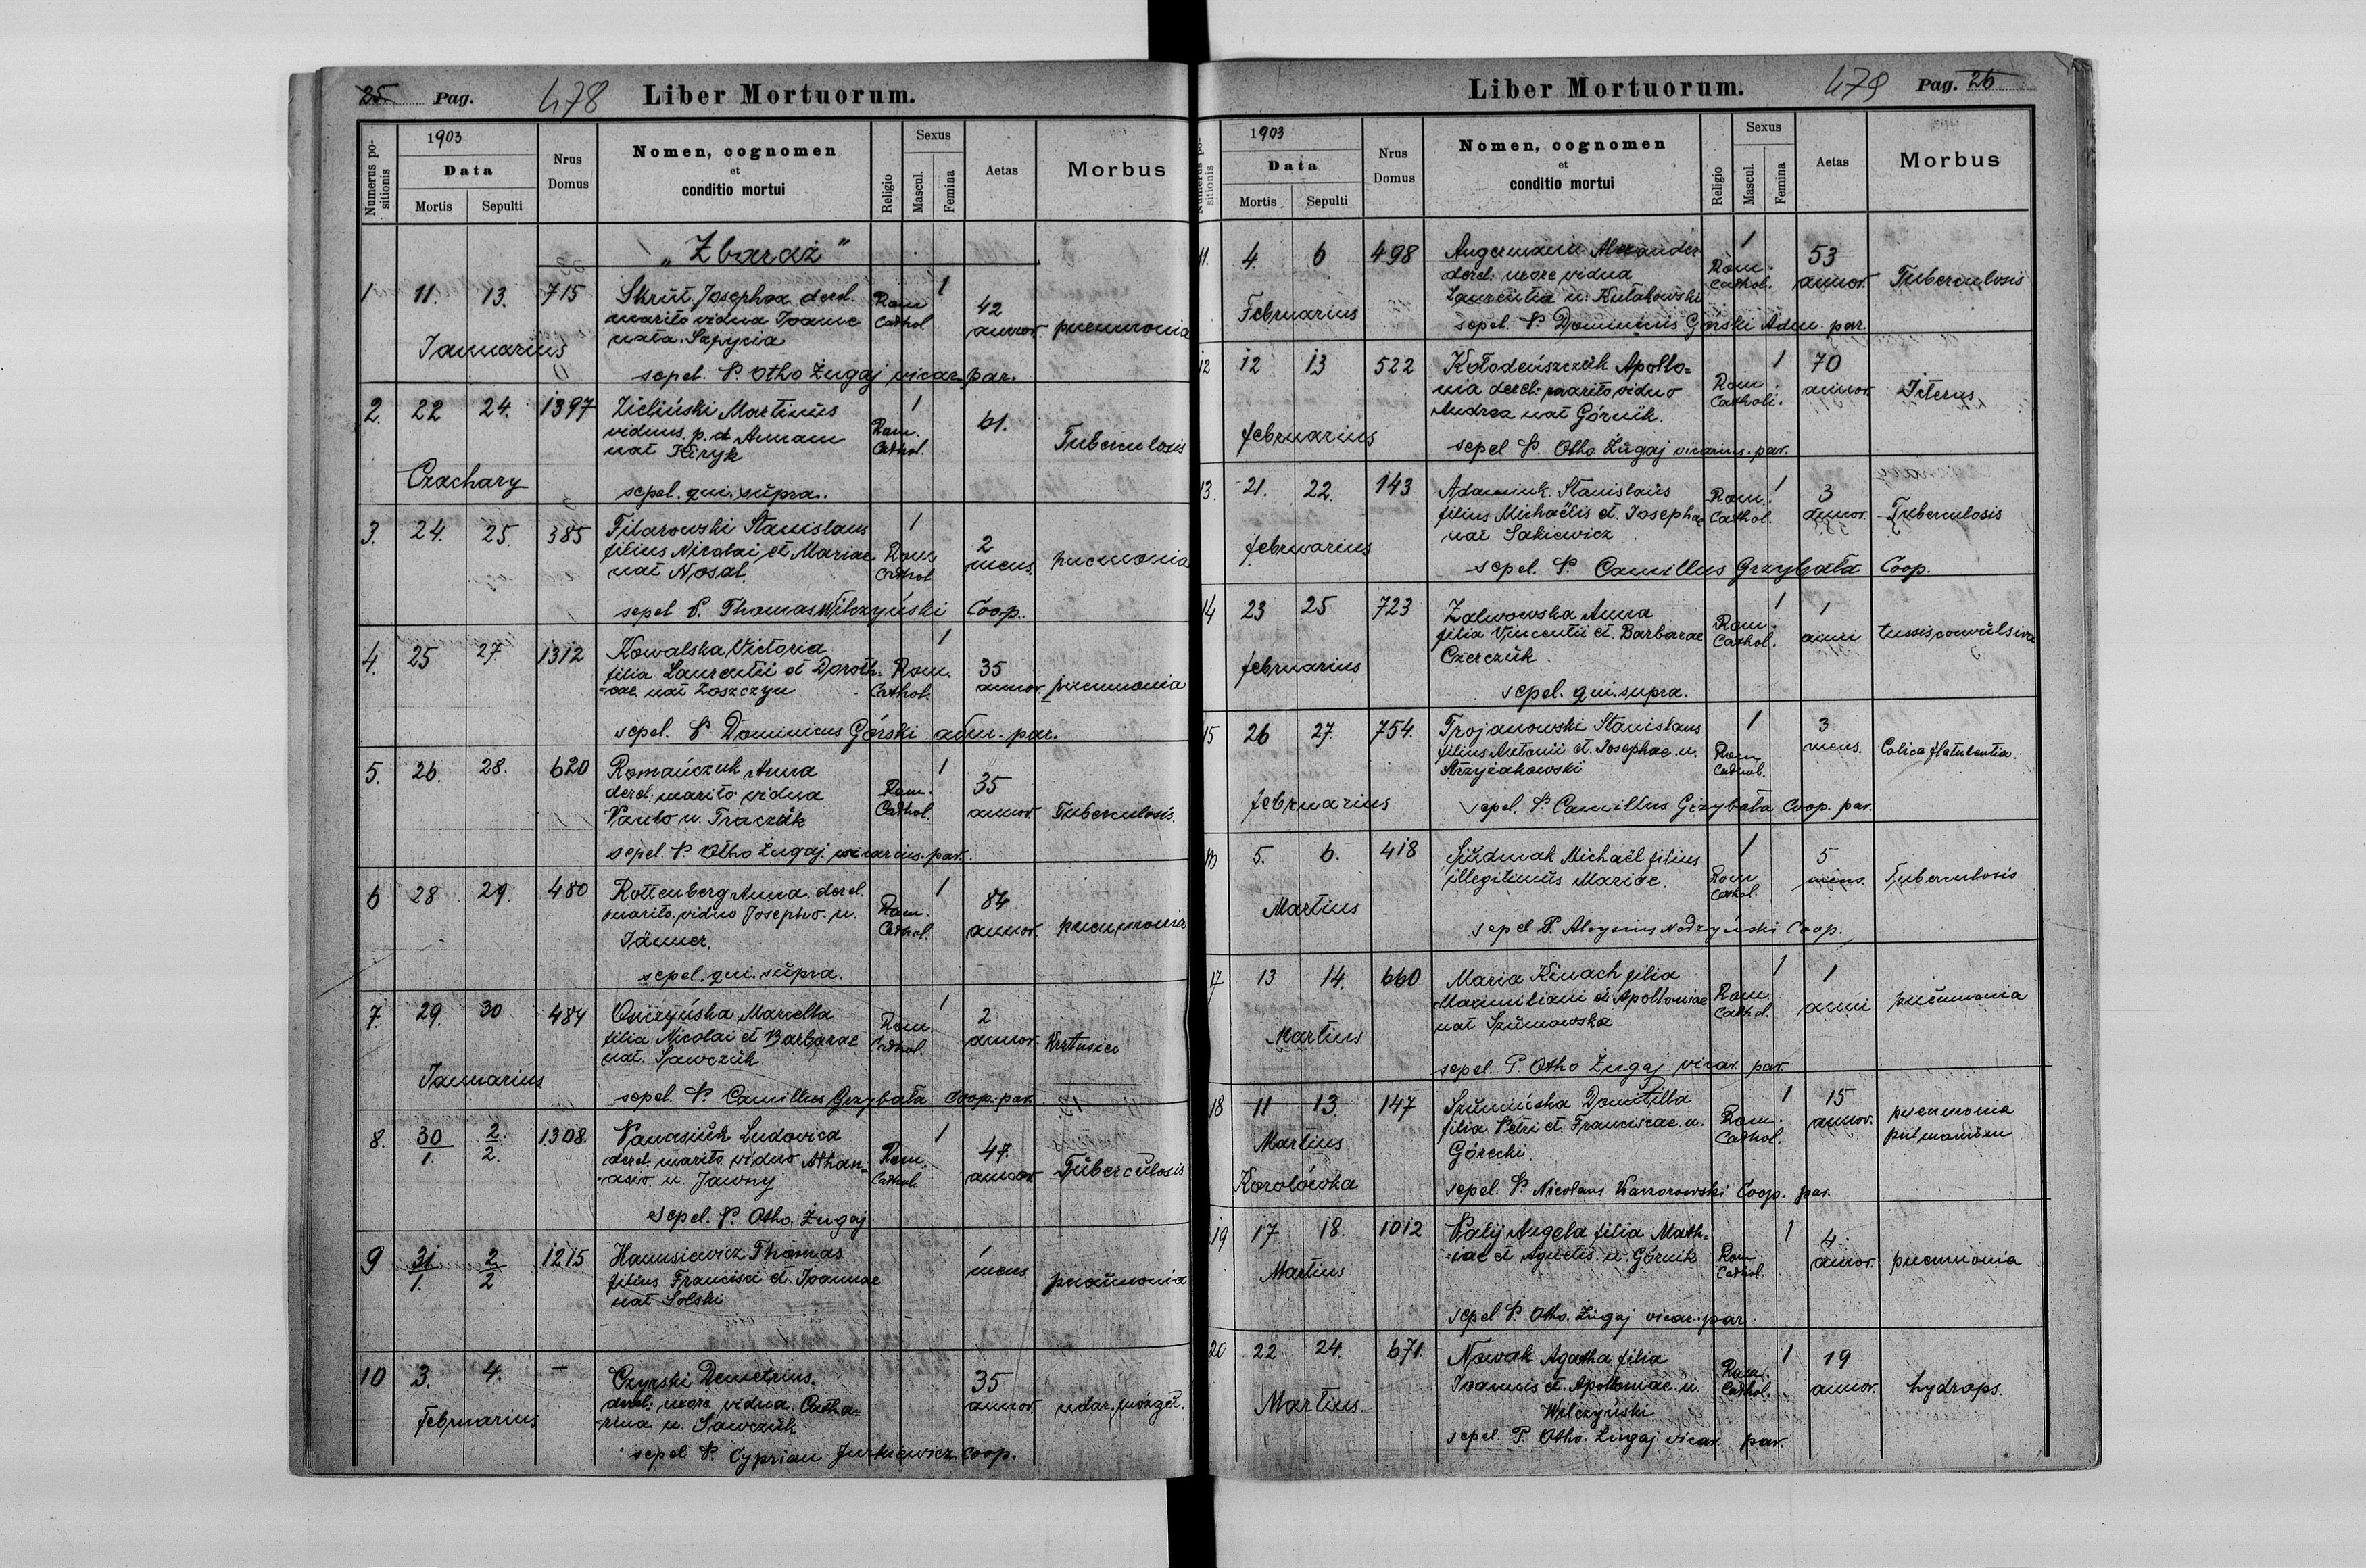 25 Pag. 478 Liber Mortuorum.
Numerus positionis
1903
Data
Mortis Sepulti
Nrus Domus
Nomen, cognomen
et
conditio mortui
Religio
Sexus
Mascul. Femina
Aetas
Morbus
„Zbaraż"
1 11. 13. 715 Skrut Josepha derel. Rom 1 42
marito vidua Joanne Cathol annor. pneumonia
nata Szpyrna
Januarius
sepel. P. Otho Żugaj vicar. par.
2. 22 24. 1397 Zieliński Martinus 1 61.
viduus p. d Annam Rom. Tuberculosis
nat Kiryk Cathol.
Czachary
sepel. qui supra.
3. 24. 25. 385 Fitarowski Stanislaus 1 2
filius Nicolai et Mariae Rom mens. pneumonia
nat Nosal. Cathol
sepel P. Thomas Wilczyński Coop.
4. 25 27. 1312 Kowalska Victoria 1
filia Laurentii et Doroth- Rom. 35
-eae nat Zoszczyn Cathol. annor. pneumonia
sepel. P Dominicus Górski adm. par.
5. 26. 28. 620 Romańczuk Anna 1 35
derel. marito vidua Rom. annor. Tuberculosis.
Paulo n. Traczuk Cathol.
sepel. P. Otho Żugaj. vicarius. par.
6 28 29. 480 Rottenberg Anna derel. 1 84
marito viduo Josepho n. Rom. annor. pneumonia
Jänner. Cathol.
sepel. qui supra.
7. 29. 30 484 Marcella 1 2
filia Nicolai et Barbarae Rom annor. Krztusiec
nat. Sawczuk Cathol.
Januarius
sepel. P. Camillus Grzybała Coop. par.
8. 30/1. 2/2. 1308. Panasiuk Ludovica 1 47.
derel. marito viduo Athan- Rom. annor Tuberculosis
-asio n. Jawny Cathol.
sepel. P. Otho. Żugaj
9 31/1. 2/2 1215 Hanusiewicz Thomas 1
filius Francisci et Joannae mens pneumonia
nat Solski
10 3. 4. – Czyrski Demetrius. 35
derel. uxore vidua Catha- annor. udar. mózgu.
-rina n. Sawczuk
Februarius
sepel P. Cyprian Jurkiewicz Coop.
Liber Mortuorum. 479 Pag. 26
Numerus positionis
1903
Data
Mortis Sepulti
Nrus Domus
Nomen, cognomen
et
conditio mortui
Religio
Sexus
Mascul. Femina
Aetas
Morbus
11. 4. 6 498 Angermann Alexander 1 53
derel. uxore vidua Rom. annor. Tuberculosis
Laurentia n. Kułakowski Cathol.
Februarius
sepel. P. Dominicus Górski Adm. par.
12 12 13 522 Kołodeńszczuk Apollo- 1 70
nia derel. marito viduo Rom. annor. Icterus
Andrea nat Górnik. Catholi.
februarius
sepel P. Otho Żugaj vicarius. par.
13. 21. 22. 143 Stanislaus Rom. 1 3
filius Michaëlis et. Josephae Cathol. annor. Tuberculosis
nat Sakiewicz
februarius
sepel. P. Camillus Grzybała Coop.
14 23 25 723 Zalwowska Anna 1 1
filia Vincentii et. Barbarae Rom. anni tussis convulsiva
Czerczuk Cathol.
februarius
sepel. qui supra.
15 26 27. 754. Trojanowski Stanislaus 1 3
filius Antonii et. Josephae n. Rom mens. Colica flatulentia.
Strzyżakowski Cathol.
februarius
sepel. P. Camillus Grzybała Coop. par.
16 5. 6. 418 Michaël filius 1 5
illegitimus Mariae. Rom Cathol. mens. Tuberculosis
Martius
sepel P. Aloysius Nodzyński Coop.
17 13 14. 660 Maria Kinach filia 1 1
Maximiliani et Apolloniae Rom. anni pneumonia
nat Szumowska Cathol.
Martius
sepel. P. Otho Żugaj vicar. par.
18 11 13. 147 Szumińska Domitilla 1 15
filia Petri et. Franciscae n. Rom. annor. pneumonia
Górecki. Cathol. pulmonum
Martius
Korolówka
sepel. P. Nicolaus Coop. par.
19 17 18. 1012 Palij Angela filia Math- 1 4.
-iae et Agnetis n. Górnik Rom Cathol. annor. pneumonia
Martius
sepel P. Otho. Żugaj vicar. par.
20 22 24. 671. Nowak Agatha filia 1 19
Joannis et. Apolloniae n. Rom. Cathol. annor. hydrops.
Wilczyński
Martius.
sepel P. Otho. Żugaj vicar. par.